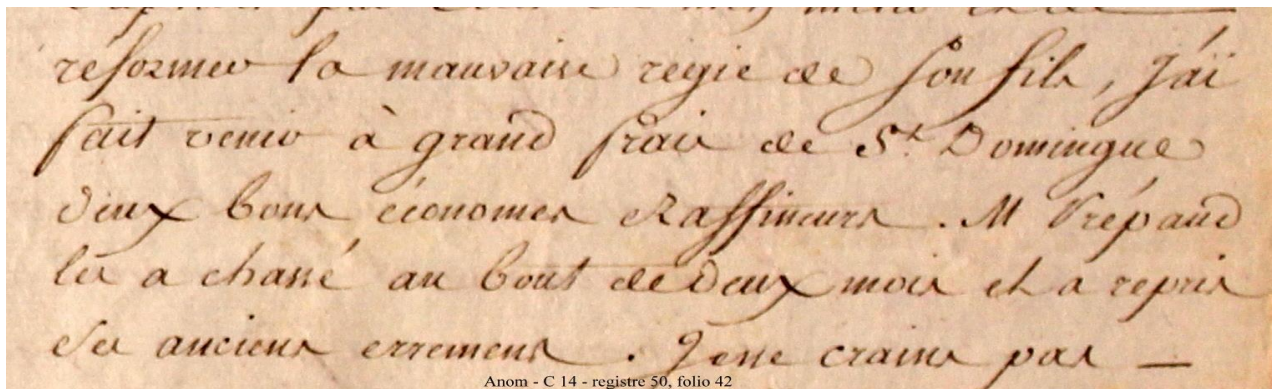 réformer la mauvaise regie de son fils, J'ai
fait venir à grand frais de St. Domingue
deux bons économes Raffineurs. M Prépaud
les a chassé au bout de deux mois et a repris
ses anciens erremens. Je ne crains pas —
Anom - C 14 - registre 50, folio 42